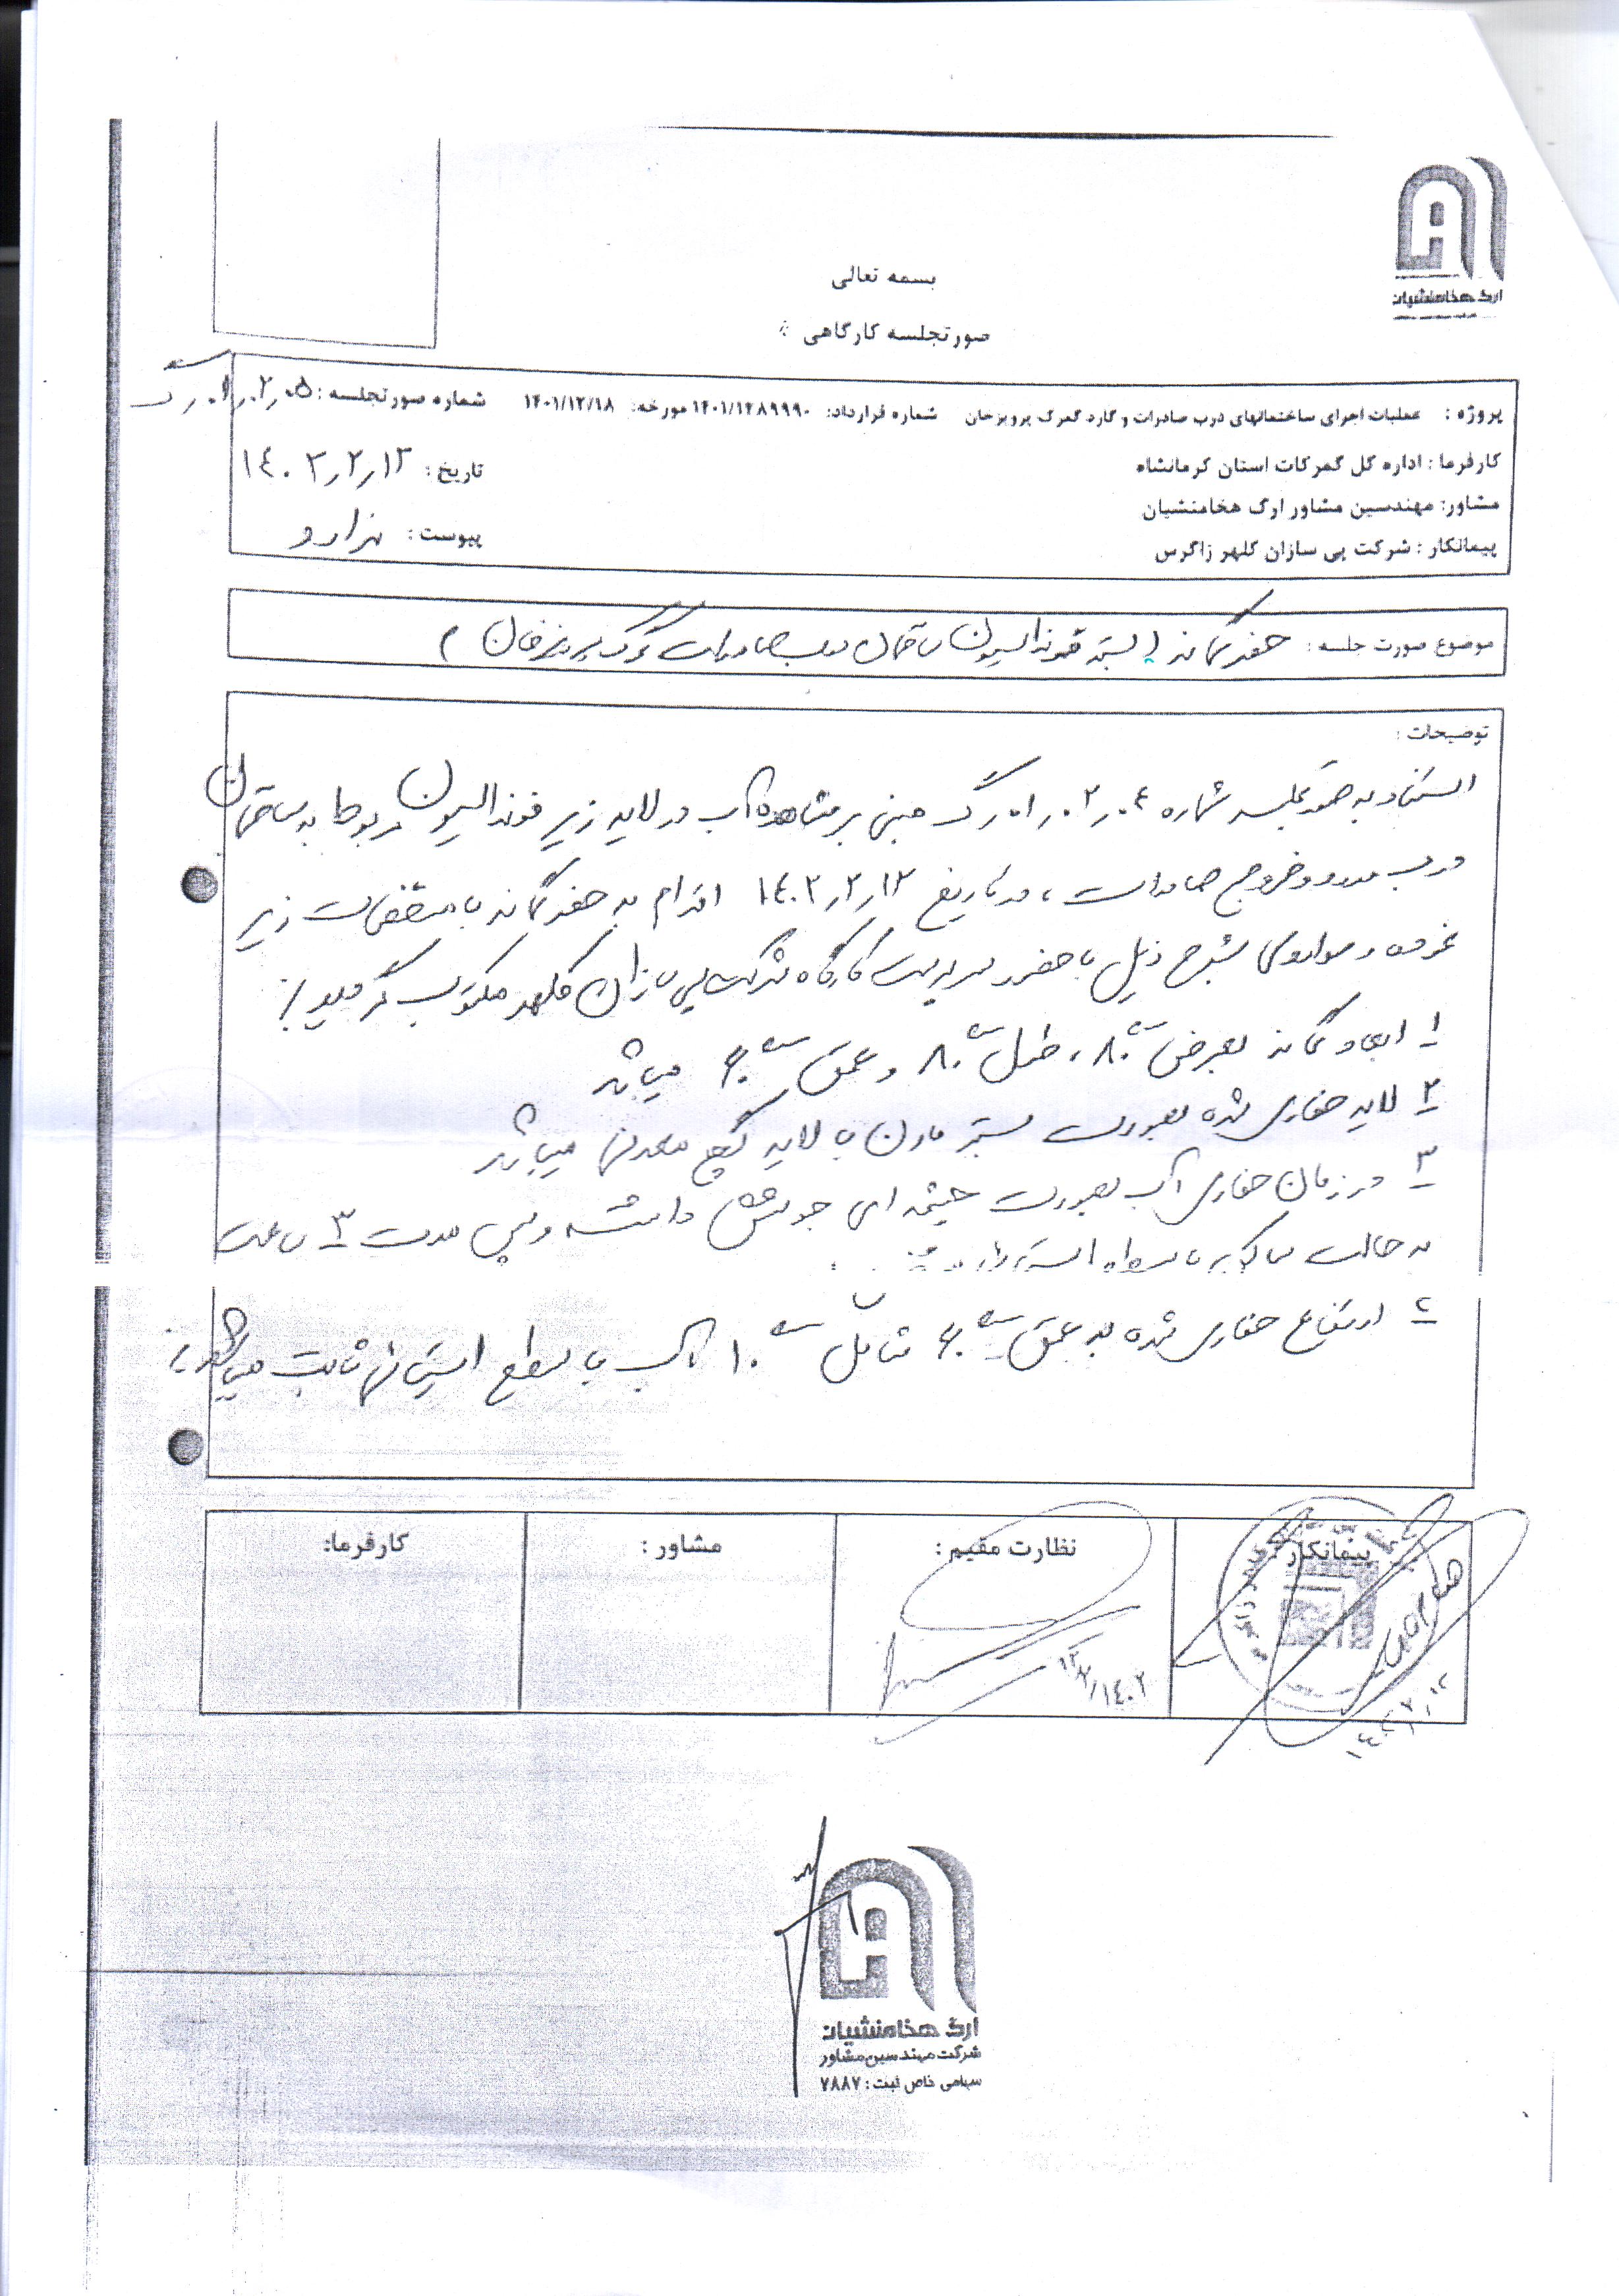 ارگ هخامنشیان
بسمه تعالی
صورتجلسه کارگاهی :
پروژه : عملیات اجرای ساختمانهای درب صادرات و گارد گمرک پرویزخان شماره قرارداد: ۱۴۰۱/۱۴۸۹۹۹۰ مورخه: ۱۴۰۱/۱۲/۱۸ شماره صورتجلسه :
کارفرما : اداره کل گمرکات استان کرمانشاه تاریخ : ۱۴۰۳/۲/۱۳
مشاور: مهندسین مشاور ارگ هخامنشیان
پیمانکار : شرکت پی سازان کلهر زاگرس پیوست : ندارد
موضوع صورت جلسه : حفر گمانه (بستر فونداسیون ساختمان درب صادرات گمرک پرویزخان)
توضیحات :
استناد به صورتجلسه شماره مبنی بر مشاهده آب در لایه زیر فونداسیون مربوط به ساختمان
درب ورود و خروج صادرات ، در تاریخ ۱۴۰۳/۲/۱۳ اقدام به حفر گمانه با مشخصات زیر
نموده و مواردی بشرح ذیل با حضور سرپرست کارگاه شرکت پی سازان کلهر مکتوب گردید :
۱ ابعاد گمانه بعرض ۸۰ ، طول ۸۰ و عمق ۶۰ میباشد
۲ لایه حفاری شده بصورت بستر مارن با لایه گچ معدنی میباشد
۳ در زمان حفاری آب بصورت چشمه ای جوشش داشته و پس مدت ۳ ساعت
به حالت
۴ ارتفاع حفاری شده به عمق ۶۰ شامل ۱۰ آب با سطح ایستایی ثابت میباشد.
پیمانکار : نظارت مقیم : مشاور : کارفرما:
۱۴۰۳/۲/۱۳ ۱۴۰۳/۲/۱۳
ارگ هخامنشیان
شرکت مهندسین مشاور
سهامی خاص ثبت : ۷۸۸۷